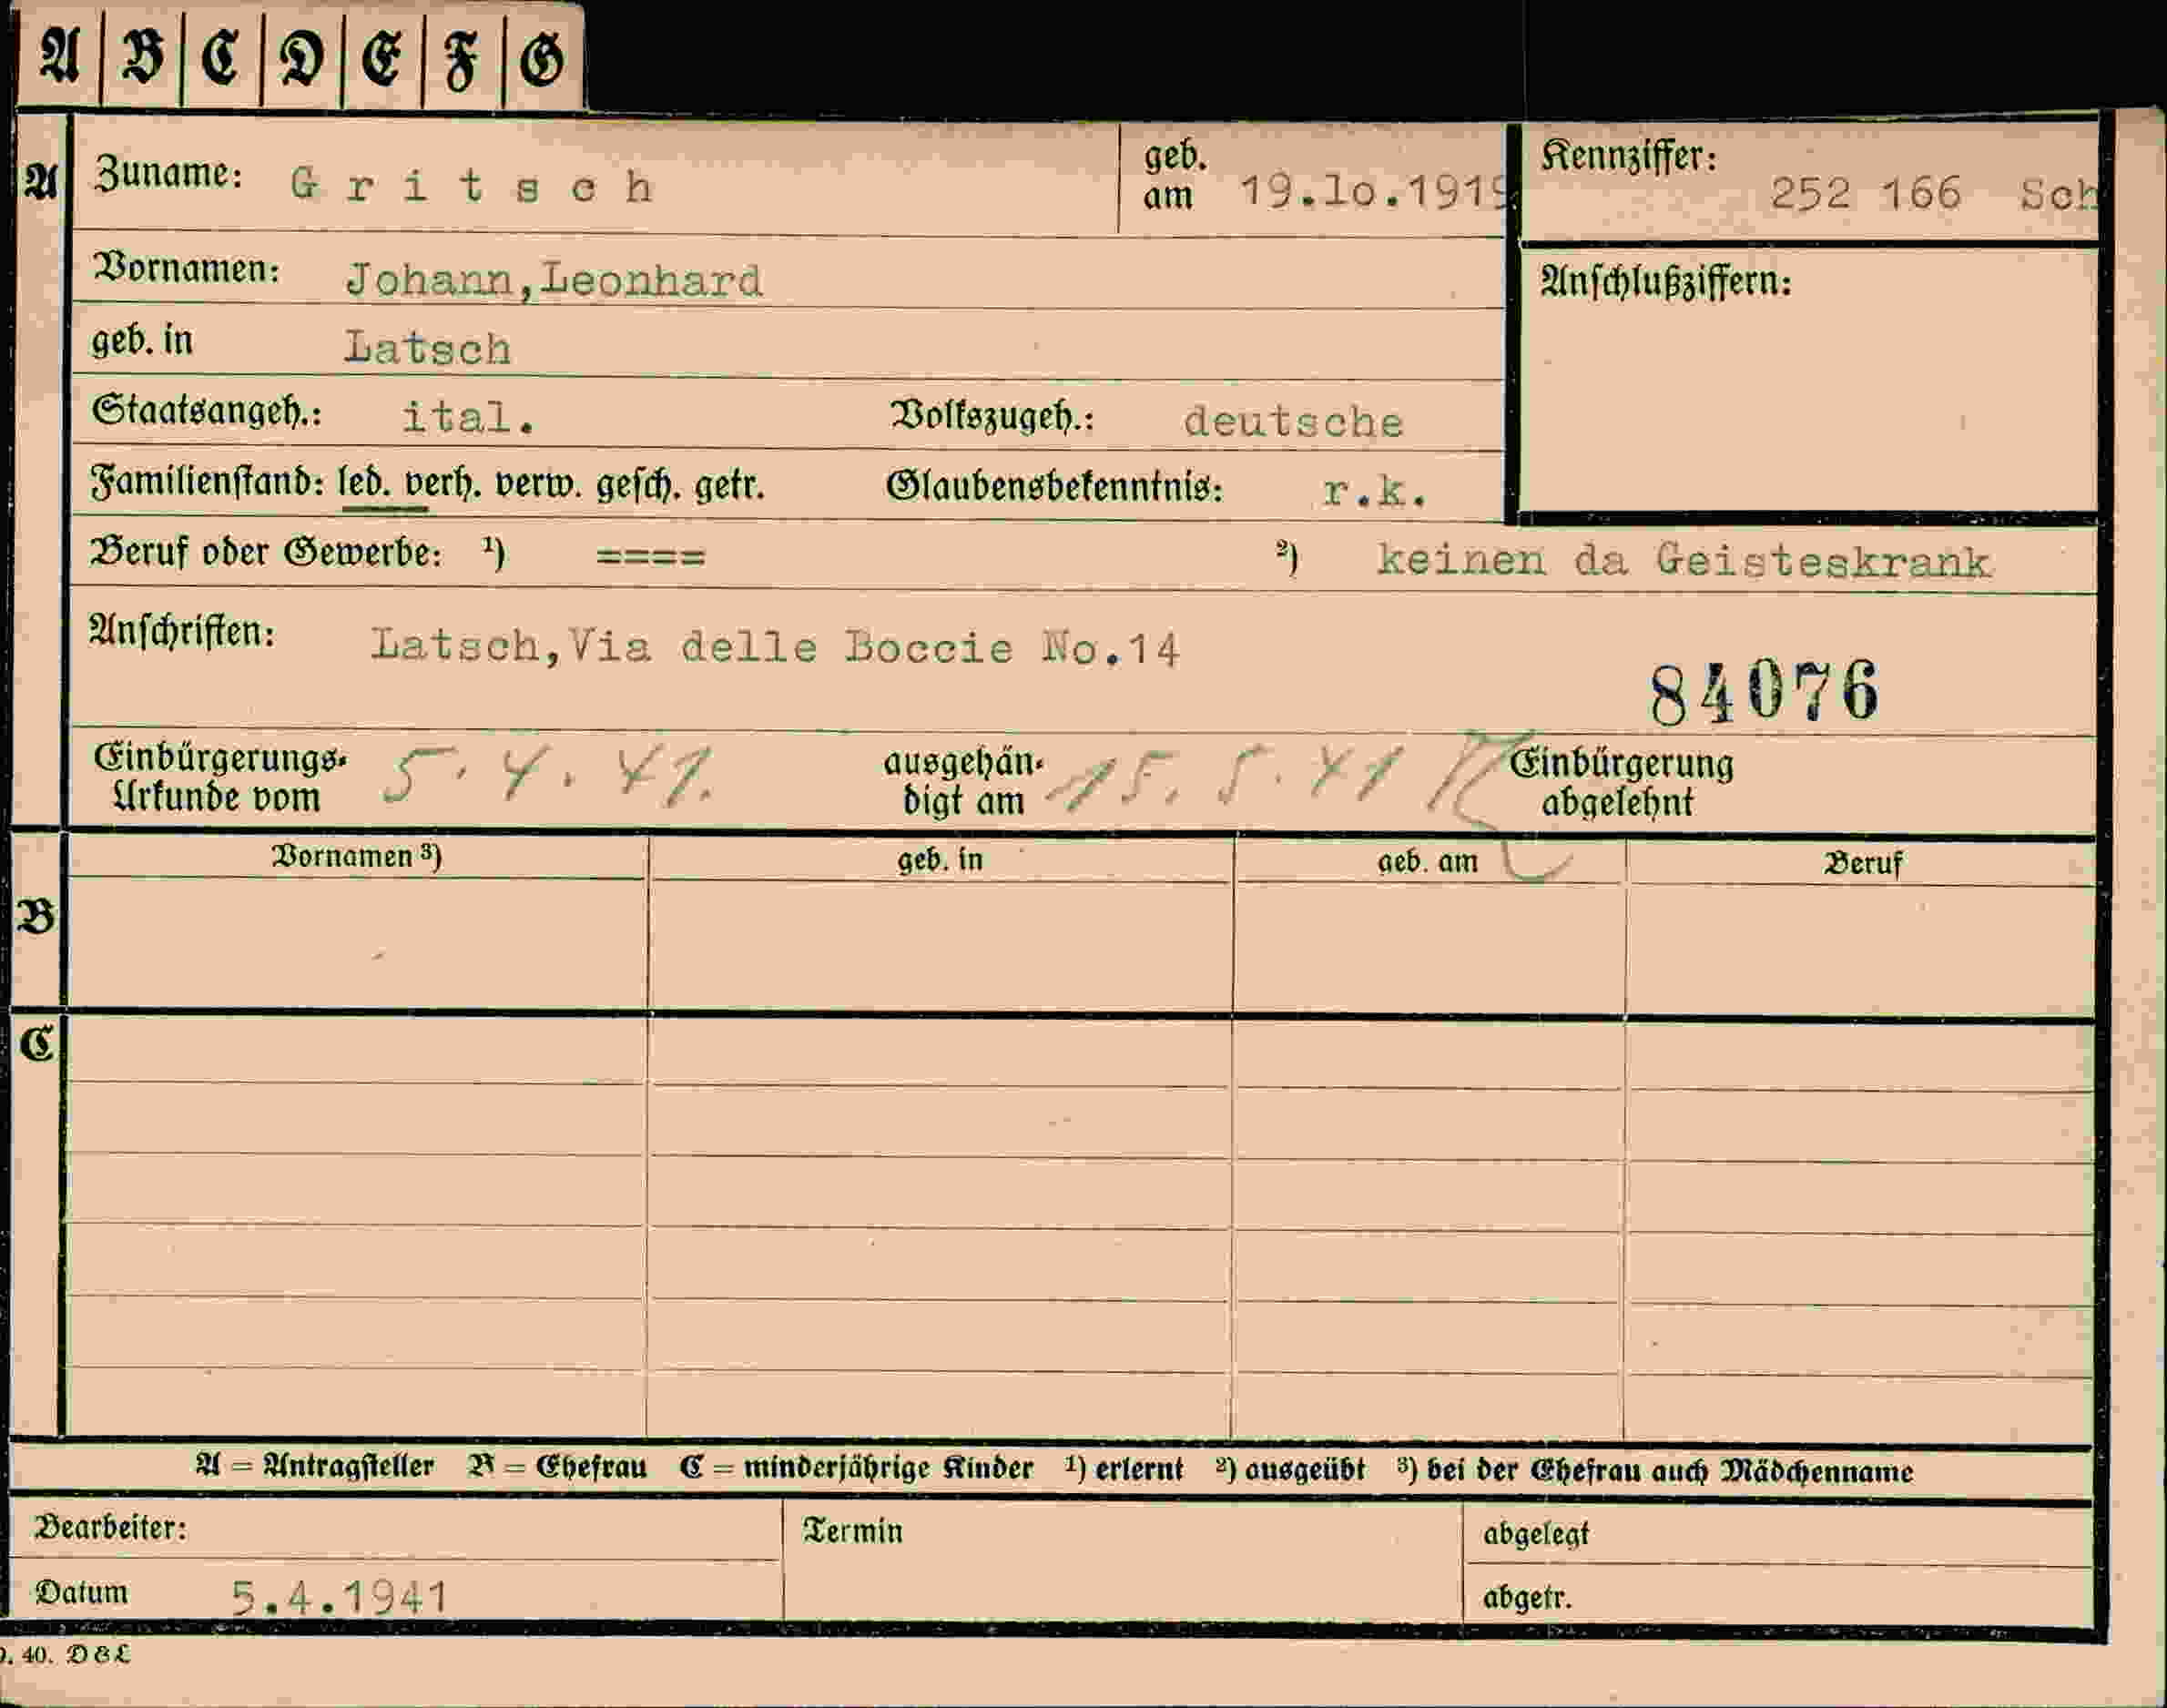 A B C D E F G
A Zuname: Gritsch geb. am 19.lo.1919 Kennziffer: 252 166 Sch
Vornamen: Johann,Leonhard Anschlußziffern:
geb. in Latsch
Staatsangeh.: ital. Volkszugeh.: deutsche
Familienstand: led. verh. verw. gesch. getr. Glaubensbekenntnis: r.k.
Beruf oder Gewerbe: ¹) ==== ²) keinen da Geisteskrank
Anschriften: Latsch,Via delle Boccie No.14
84076
Einbürgerungs-Urkunde vom 5.4.41. ausgehän-digt am 15.5.41 Einbürgerung abgelehnt
Vornamen ³) geb. in geb. am Beruf
B
C
A = Antragsteller B = Ehefrau C = minderjährige Kinder ¹) erlernt ²) ausgeübt ³) bei der Ehefrau auch Mädchenname
Bearbeiter: Termin abgelegt
Datum 5.4.1941 abgetr.
40. D&L